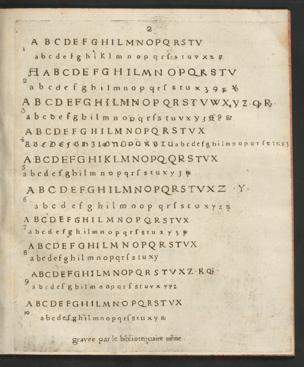 2
A B C D E F G H I L M N O P Q R S T V
1
a b c d e f g h i k l m n o p q r s t u v x z
A B C D E F G H I L M N O P Q R S T V
2
a b c d e f g h i l m n o p q r s t u x
A B C D E F G H I L M N O P Q R S T V W X Y Z
3
a b c d e f g h i l m n o p q r s t u v x y
A B C D E F G H I L M N O P Q R S T V X
4
a b c d e f g h i l m n o p q r s t u x
A B C D E F G H I K L M N O P Q Q R S T V X
5
a b c d e f g h i l m n o p q r s t u x y
A B C D E F G H I L M N O P Q R S T V X Z · Y ·
6
a b c d e f g h i l m n o p q r s t u x y z
A B C D E F G H I L M N O P Q R S T V X
7
a b c d e f g h i l m n o p q r s t u x y
A B C D E F G H I L M N O P Q R S T V X
8
a b c d e f g h i l m n o p q r s t u x y
A B C D E F G H I L M N O P Q R S T V X Z
9
a b c d e f g h i l m n o p q r s t u v x y z
A B C D E F G H I L M N O P Q R S T V X
10
a b c d e f g h i l m n o p q r s t u x y
gravée par le bibliotequaire même